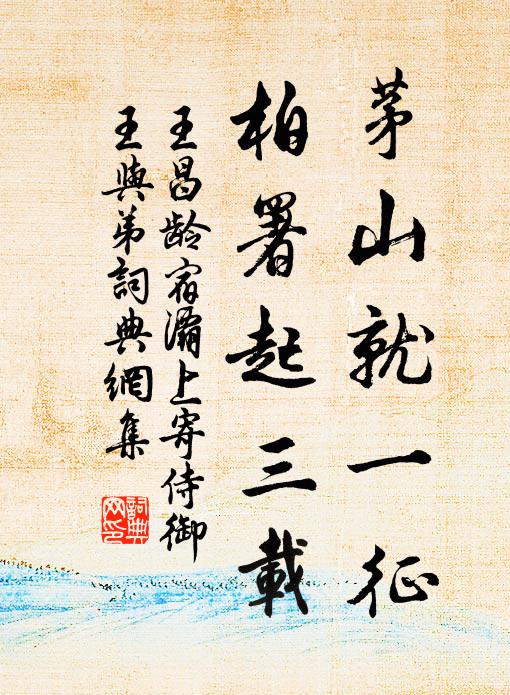 茅山就一征
柏署起三載
王昌龄宿灞上寄侍御
王與弟詞典網集
詞典
网印